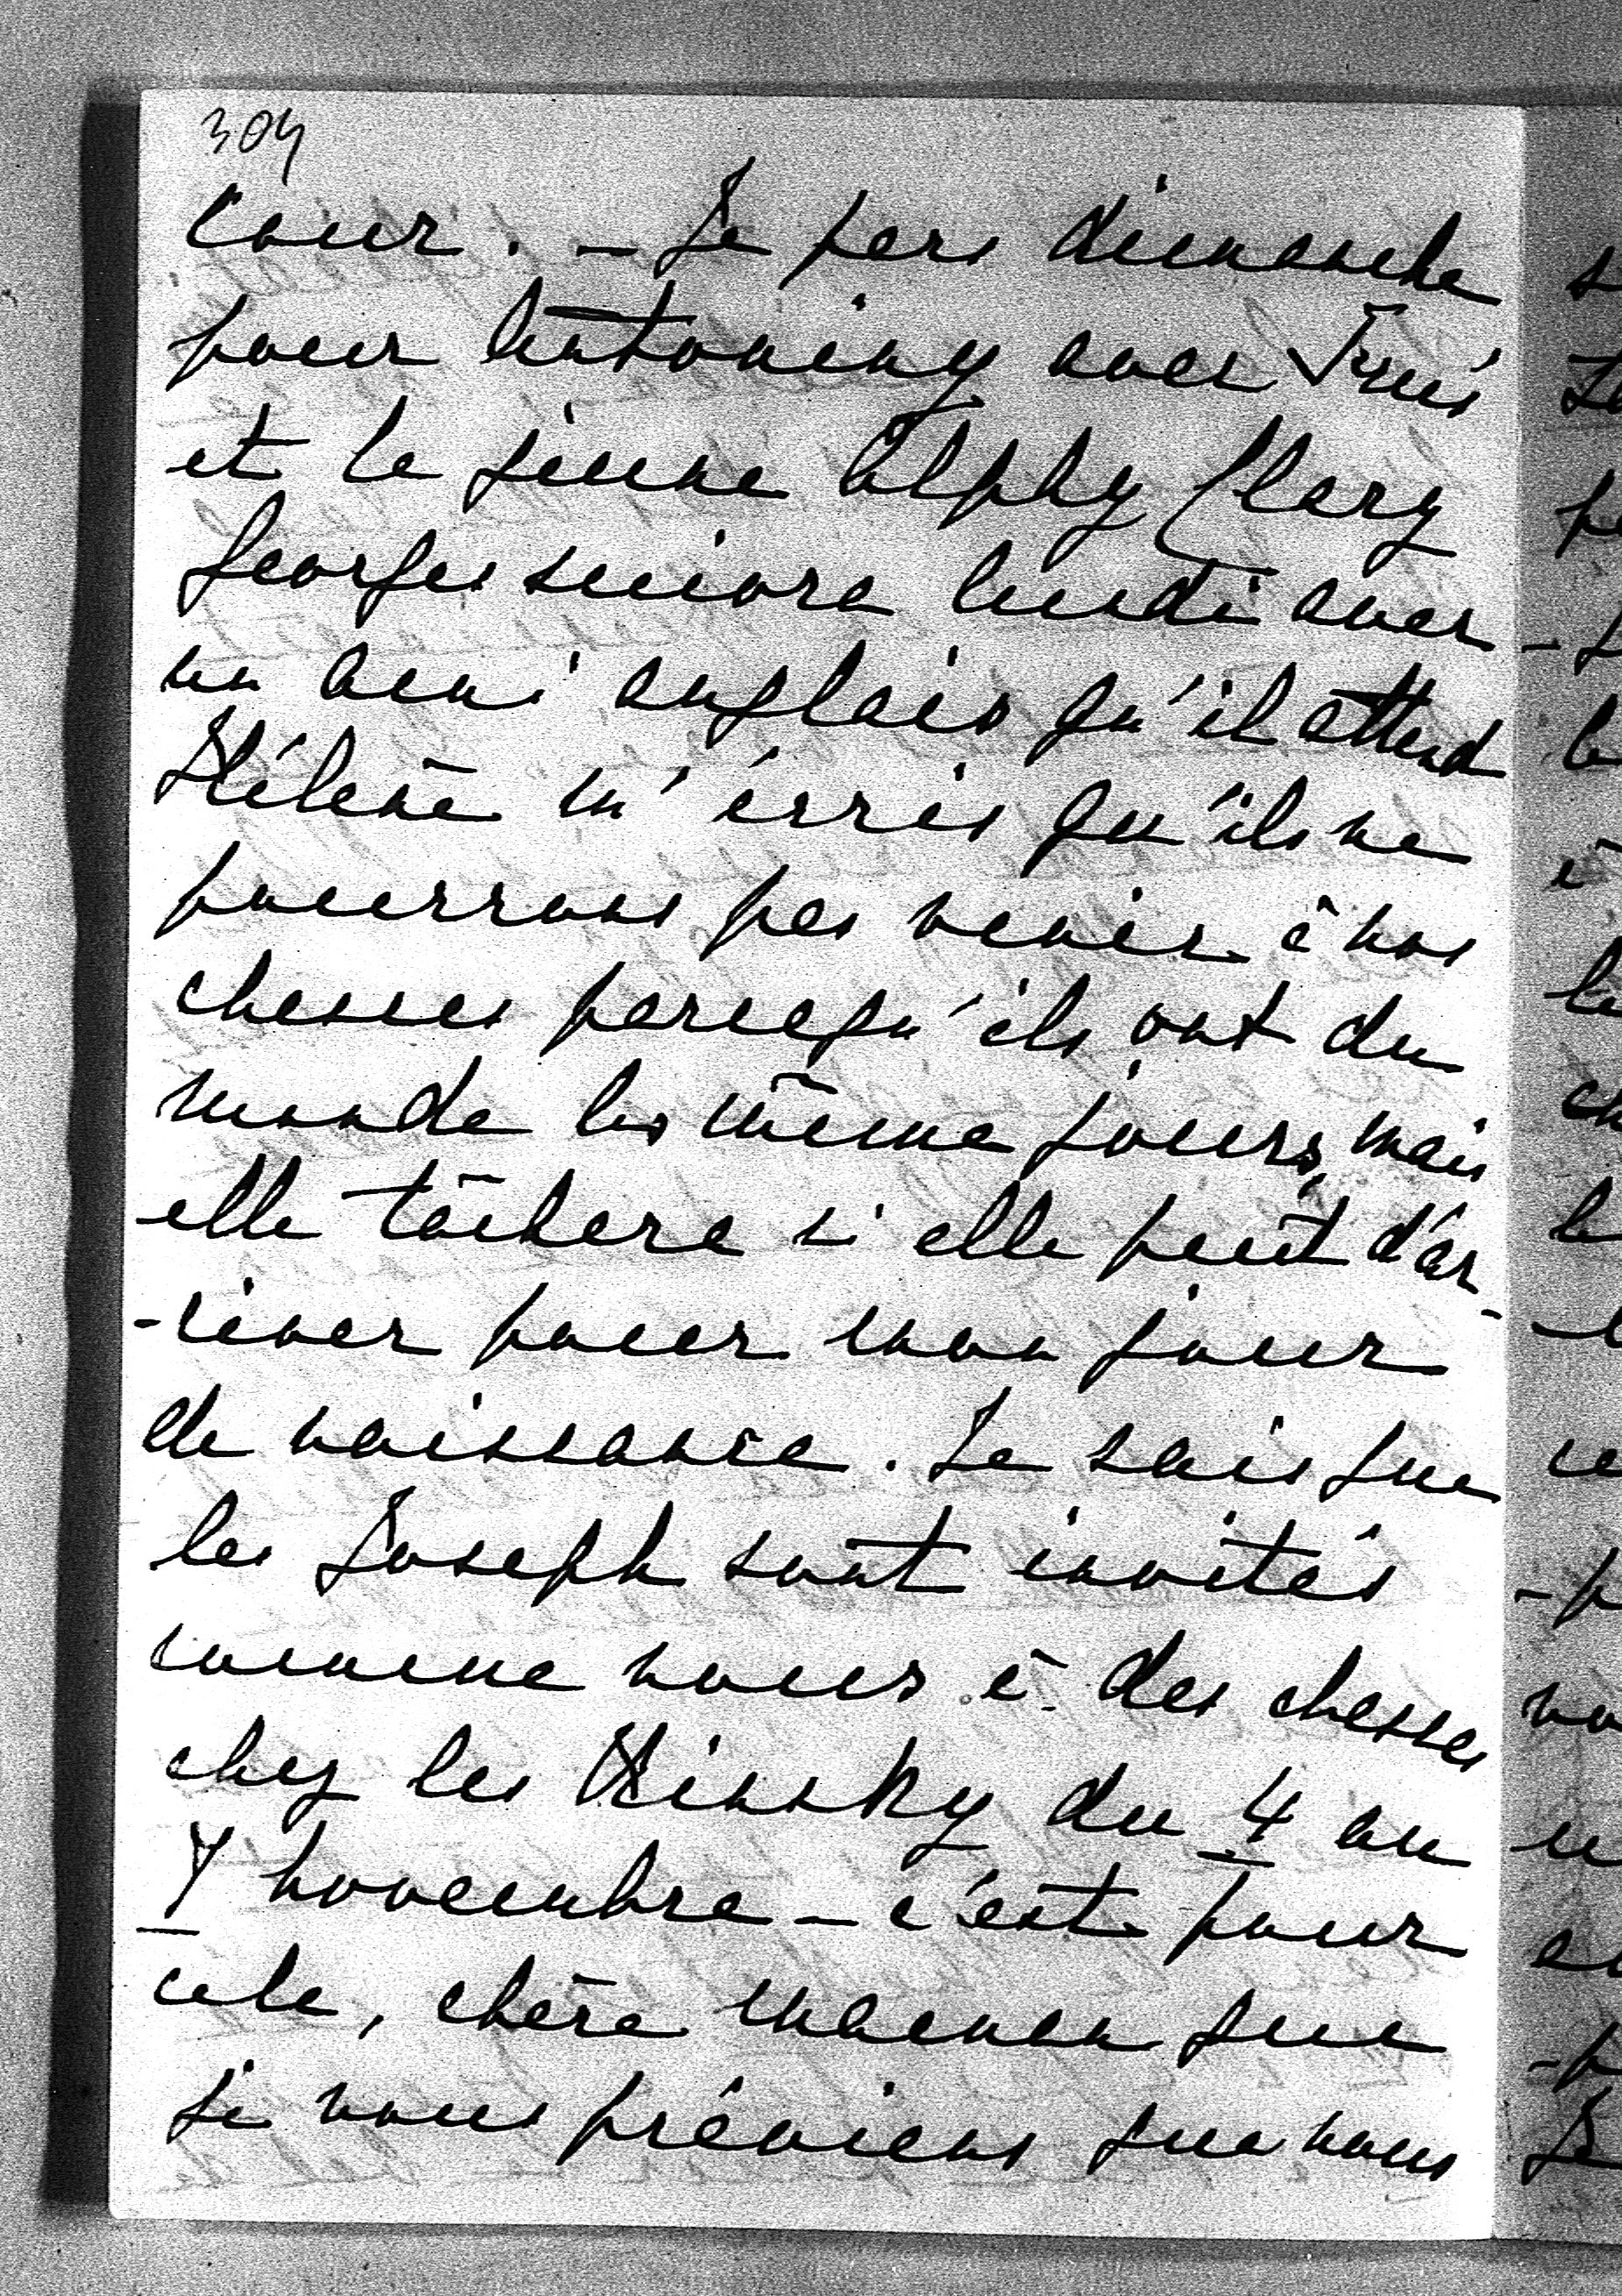 304
cour. – Je pars dimanche
pour Antoniny avec
et le jeune Alphy Clary
Georges suivra lundi avec
un ami anglais qu'il attend
Hélène m'écrit qu'ils ne
pourront pas venir à nos
chasses parcequ'ils ont du
monde les même jours, mais
elle tâchera si elle peut d'ar-
-river pour mon jour
de naissance. Je sais que
les Joseph sont invités
comme nous à des chasses
chez les Kinsky du 4 au
7 novembre – c'est pour
cela, chère maman que
je vous préviens que nous